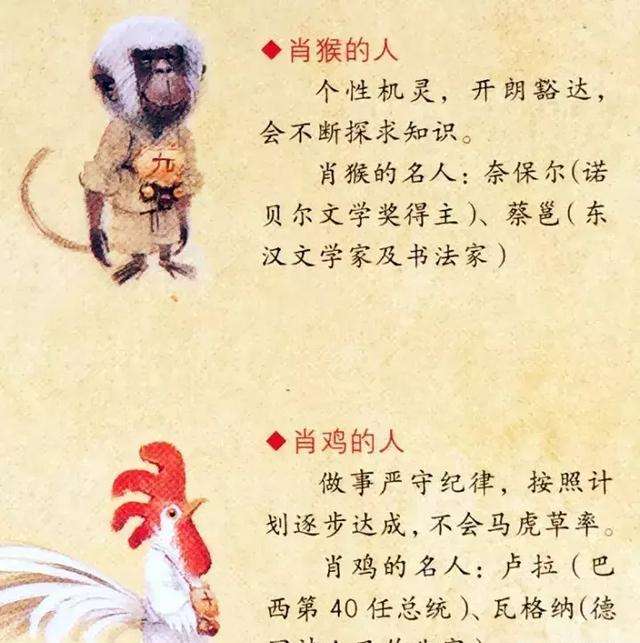 ◆肖猴的人
个性机灵，开朗豁达，
会不断探求知识。
肖猴的名人：奈保尔(诺
贝尔文学奖得主)、蔡邕(东
汉文学家及书法家)
九
◆肖鸡的人
做事严守纪律，按照计
划逐步达成，不会马虎草率。
肖鸡的名人：卢拉(巴
西第40任总统)、瓦格纳(德